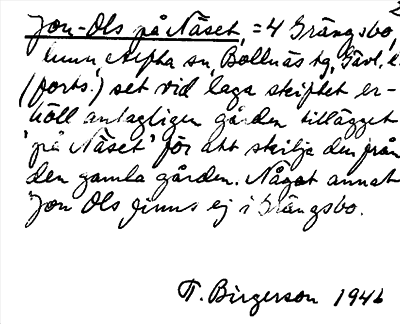 2
Jon-Ols på Näset, = 4 Grängsbo,
hmn, Alfta sn, Bollnäs tg, Gävl. l.
(forts.) set vid laga skiftet er-
höll antagligen gården tillägget
'på Näset' för att skilja den från
den gamla gården. Något annat
Jon Ols finns ej i Grängsbo.
T. Birgerson 1946